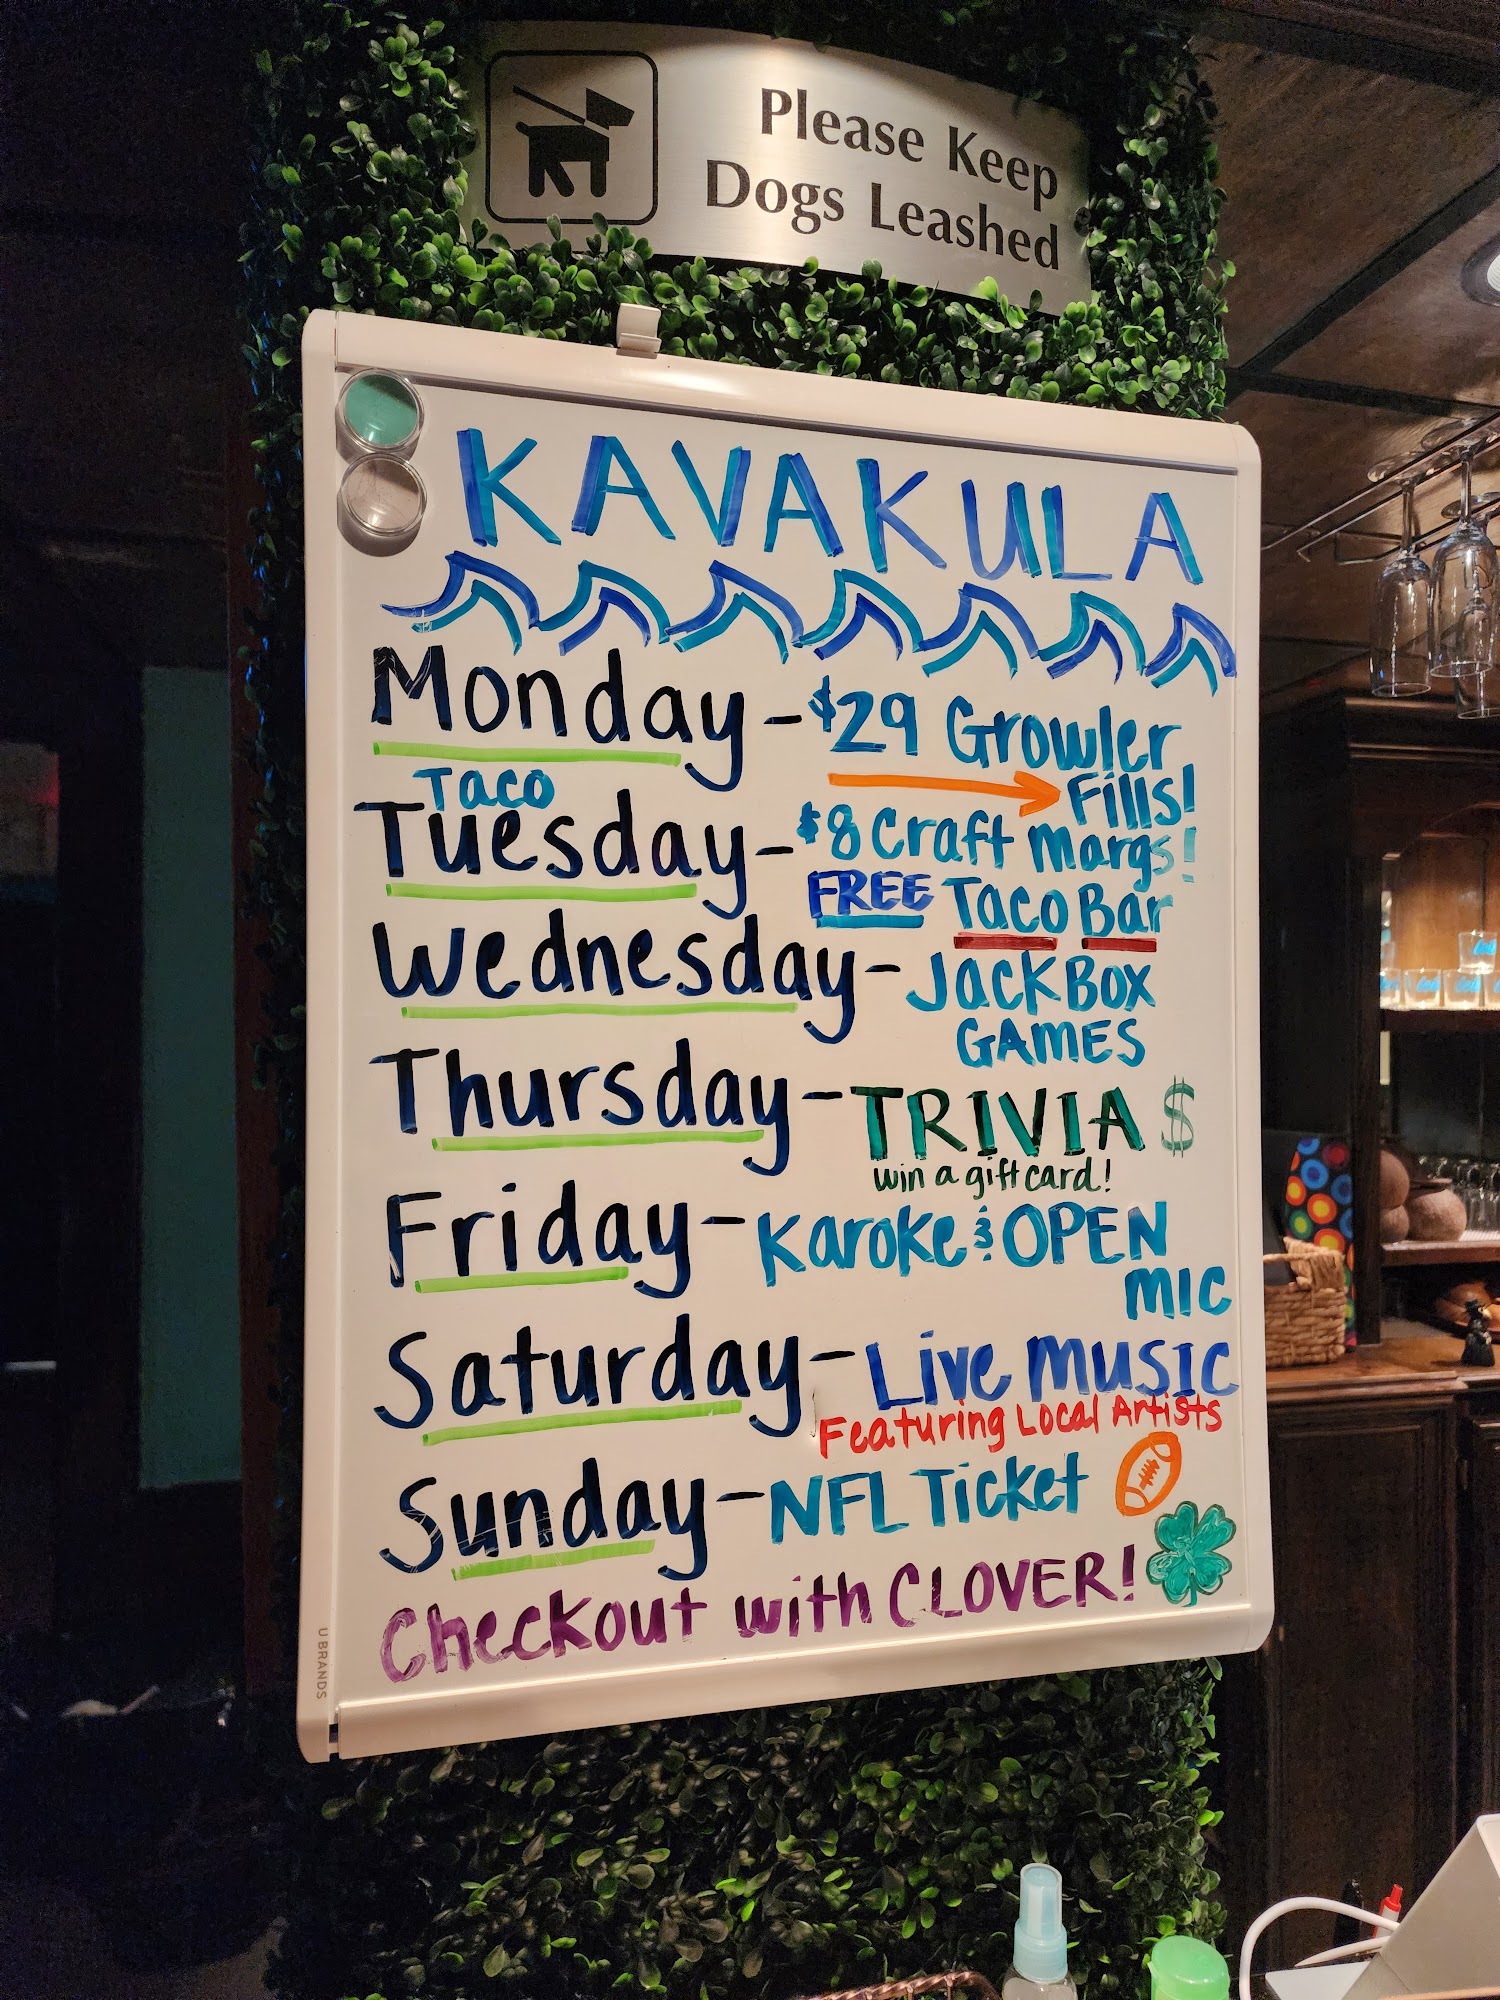 Please Keep
Dogs Leashed
KAVAKULA
Monday - $29 Growler
Fills!
Taco
Tuesday - $8 Craft Margs!
FREE Taco Bar
Wednesday - JackBox
GAMES
Thursday - TRIVIA $
win a gift card!
Friday - Karoke & OPEN
MIC
Saturday - Live Music
Featuring Local Artists
Sunday - NFL Ticket
Checkout with CLOVER!
U BRANDS